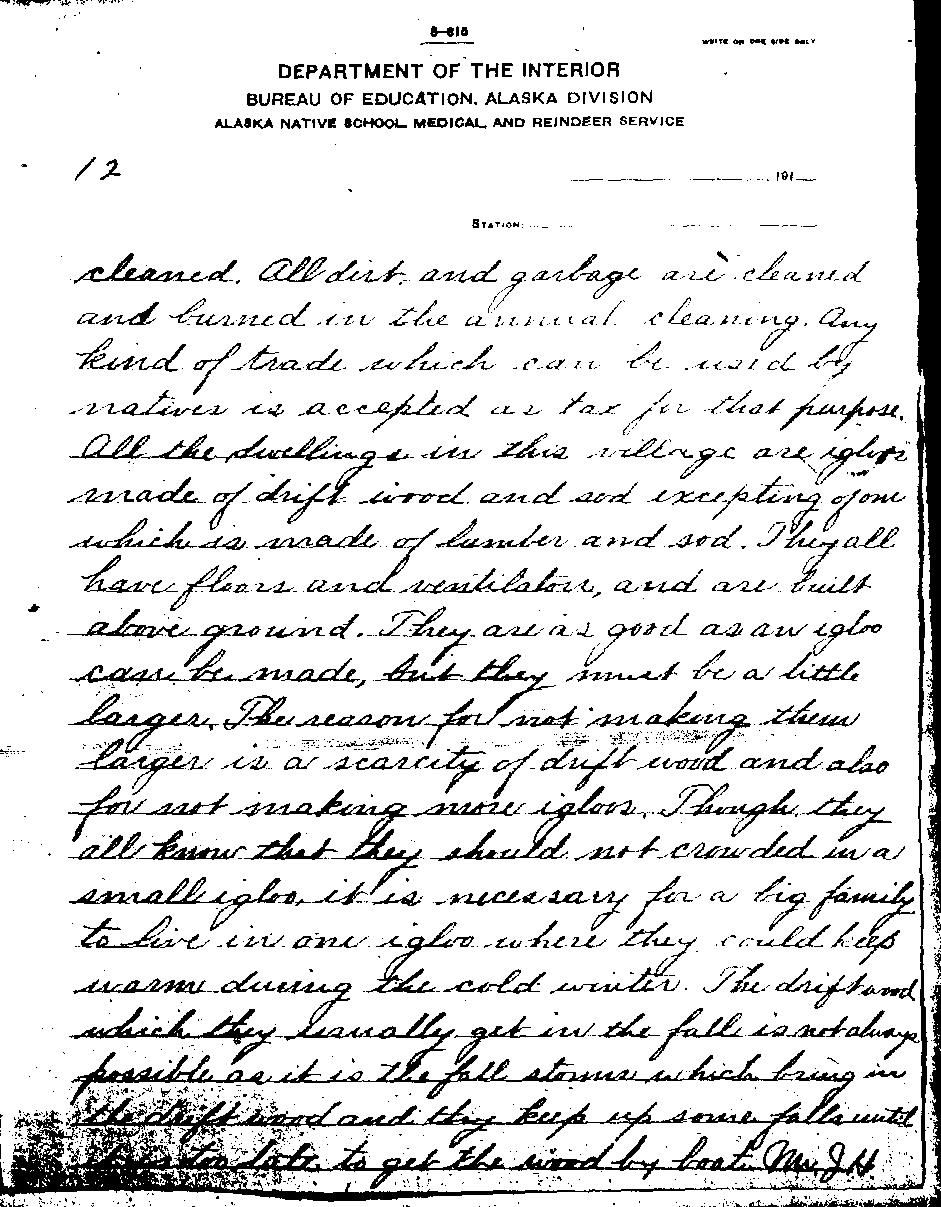 8-815
WRITE ON ONE SIDE ONLY
DEPARTMENT OF THE INTERIOR
BUREAU OF EDUCATION, ALASKA DIVISION
ALASKA NATIVE SCHOOL, MEDICAL, AND REINDEER SERVICE
12
191
STATION:
cleaned. All dirt, and garbage are cleaned
and burned in the annual cleaning. Any
kind of trade which can be used by
natives is accepted as tax for that purpose.
All the dwellings in this village are igloos
made of drift wood and sod excepting of one
which is made of lumber and sod. They all
have floors and ventilators, and are built
above ground. They are as good as an igloo
can be made, but they must be a little
larger. The reason for not making them
larger is a scarcity of drift wood and also
for not making more igloos. Though they
all know that they should not crowded in a
small igloo, it is necessary for a big family
to live in one igloo where they could keep
warm during the cold winter. The drift wood
which they usually get in the fall is not always
possible as it is the fall storms which bring in
the drift wood and they keep up some falls until
it is too late to get the wood by boat. Mr. J H